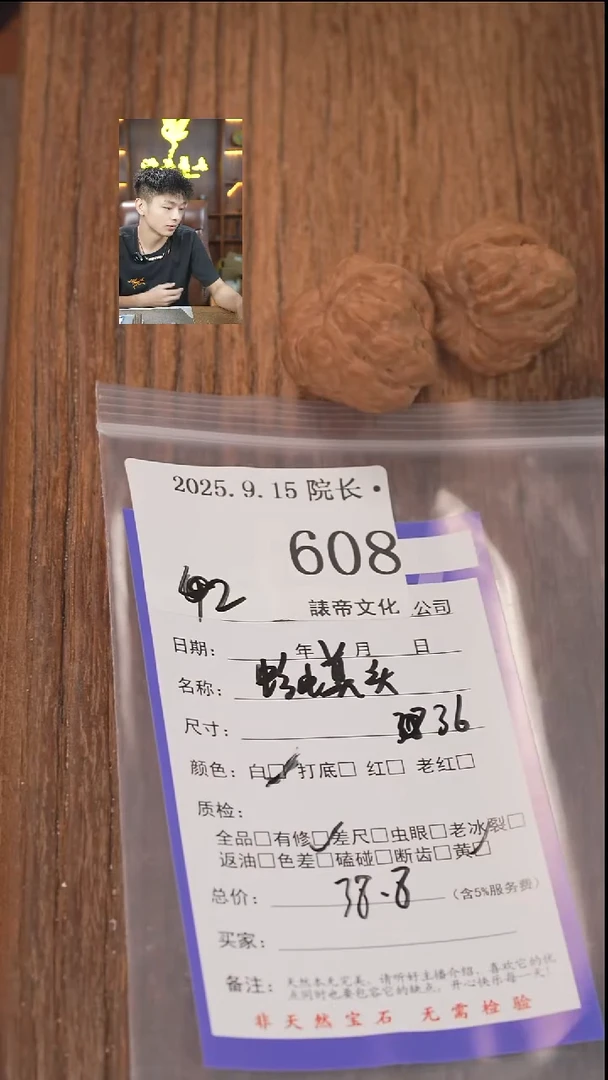 2025.9.15 院长·
608
42
諘帝文化 公司
日期： 年 月 日
名称：
尺寸： 36
颜色：白□ 打底□ 红□ 老红□
质检：
全品□有修□差尺□虫眼□老冰裂□
返油□色差□磕碰□断齿□黄□
总价： 38.8 （含5%服务费）
买家：
备注： 天然本无完美，请听好主播介绍，喜欢它的优
点同时也要包容它的缺点，开心快乐每一天！
非天然宝石 无需检验